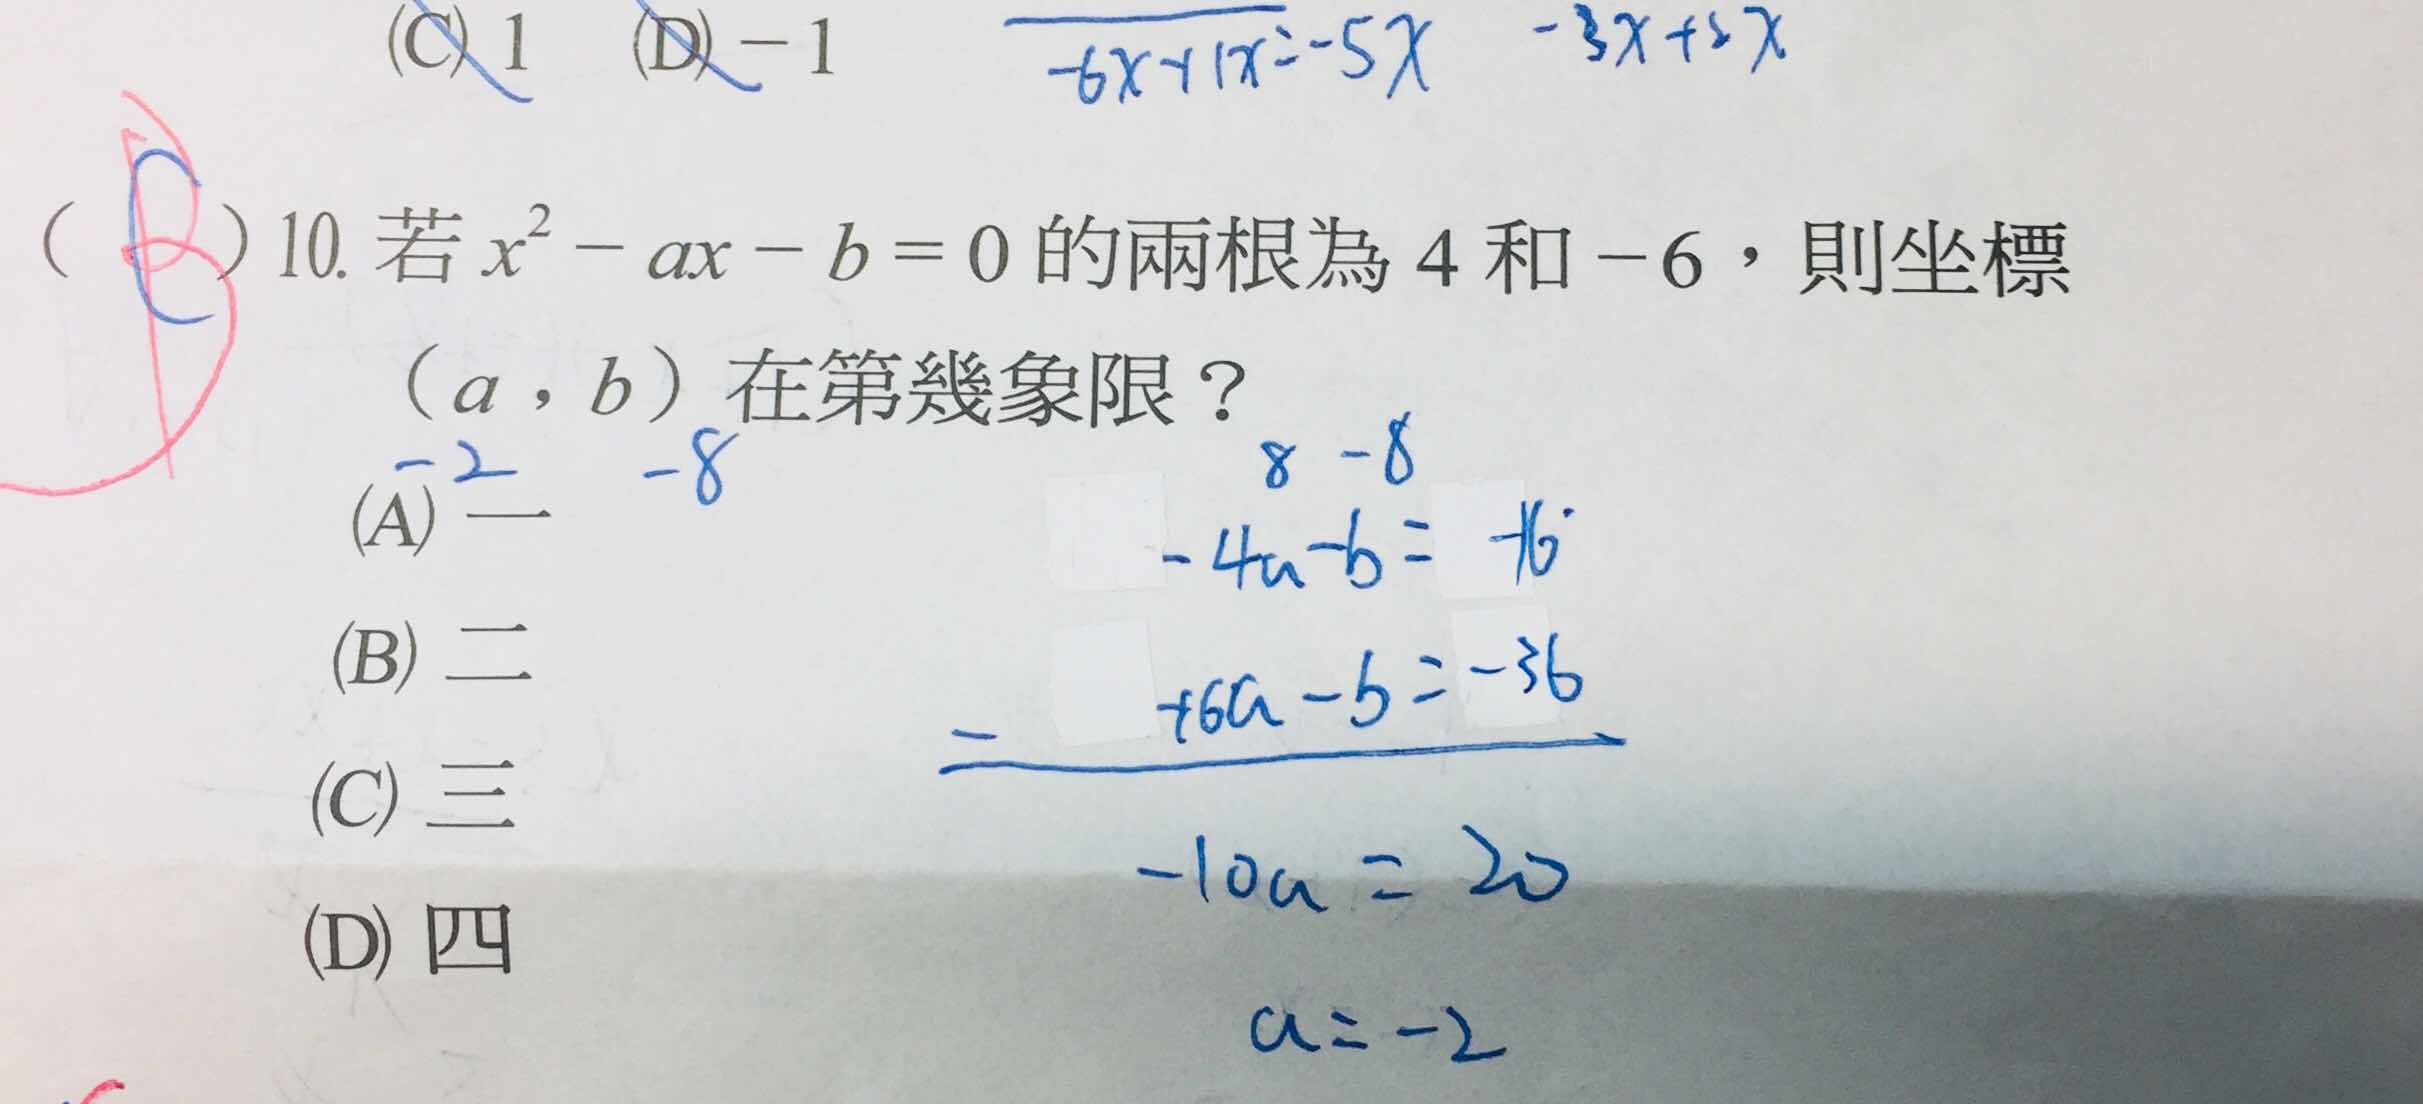 (C) 1 (D) －1
-6x+1x=-5x -3x+2x
(B) 10. 若 x² － ax － b = 0 的兩根為 4 和 －6，則坐標
（a，b）在第幾象限？
-2 -8
8 -8
(A) 一
-4a-b= -16
(B) 二
+6a-b=-36
-
(C) 三
-10a = 20
(D) 四
a=-2